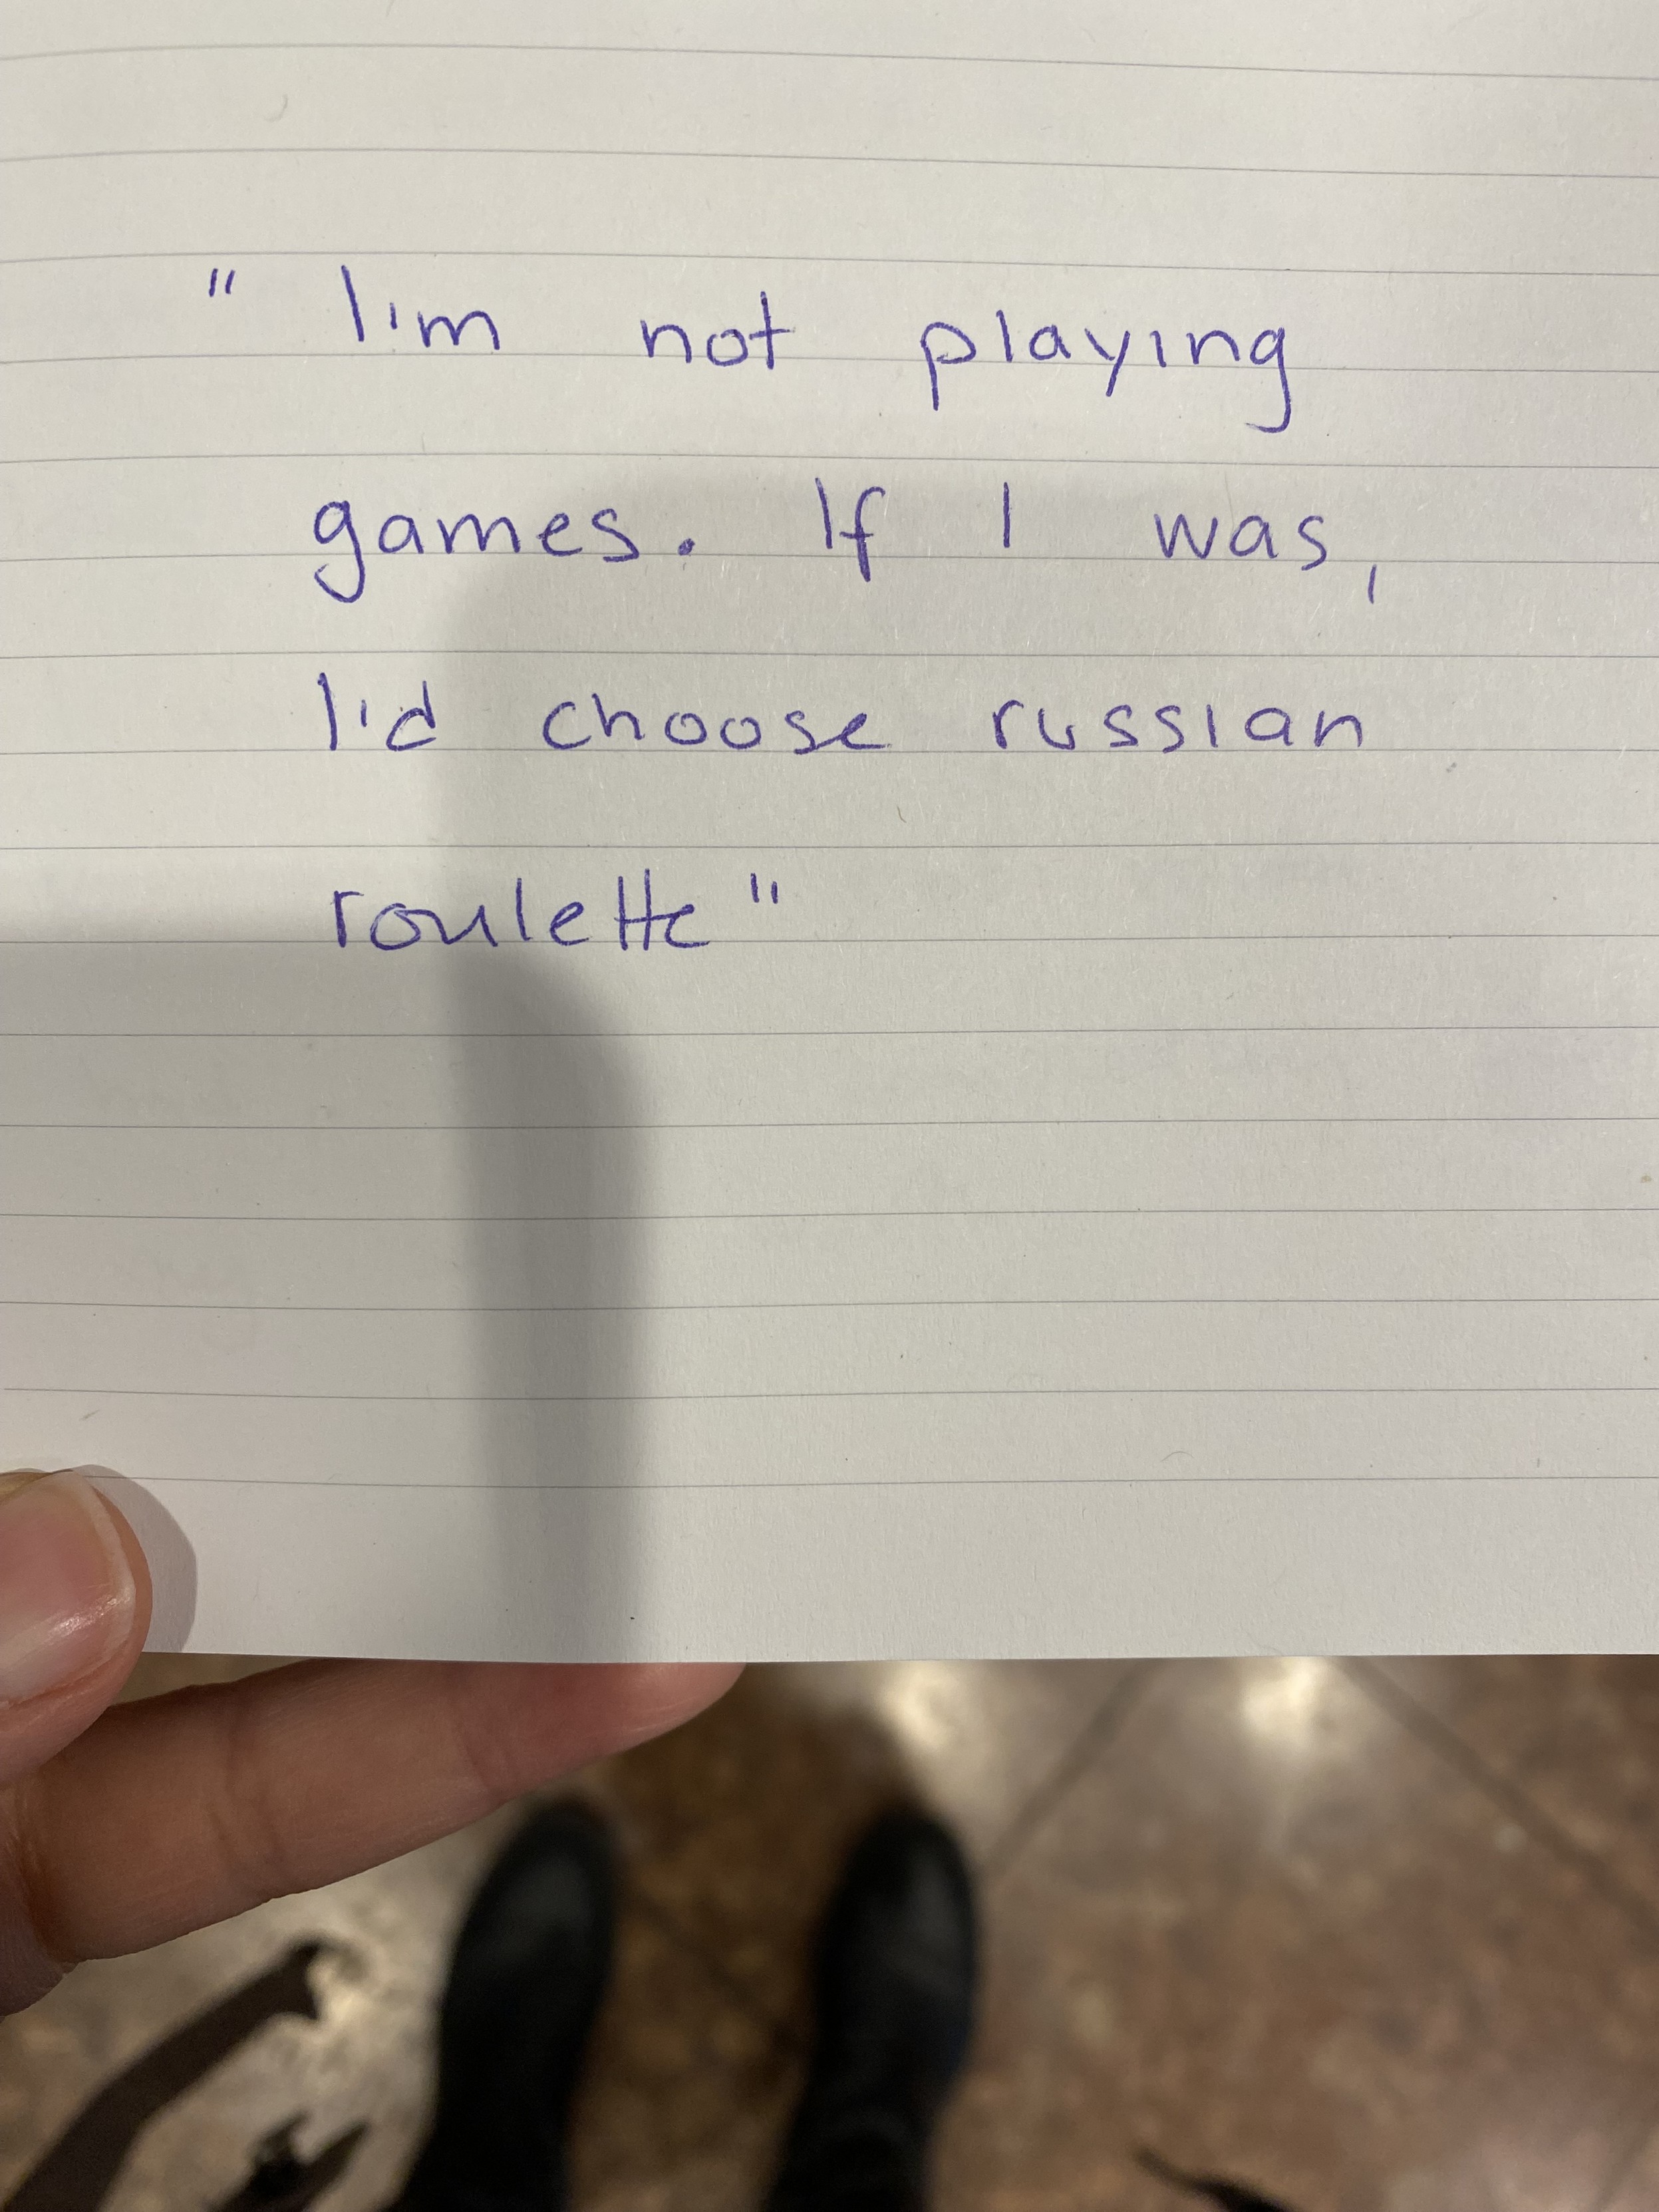 " I'm not playing
games. If I was,
I'd choose russian
roulette"